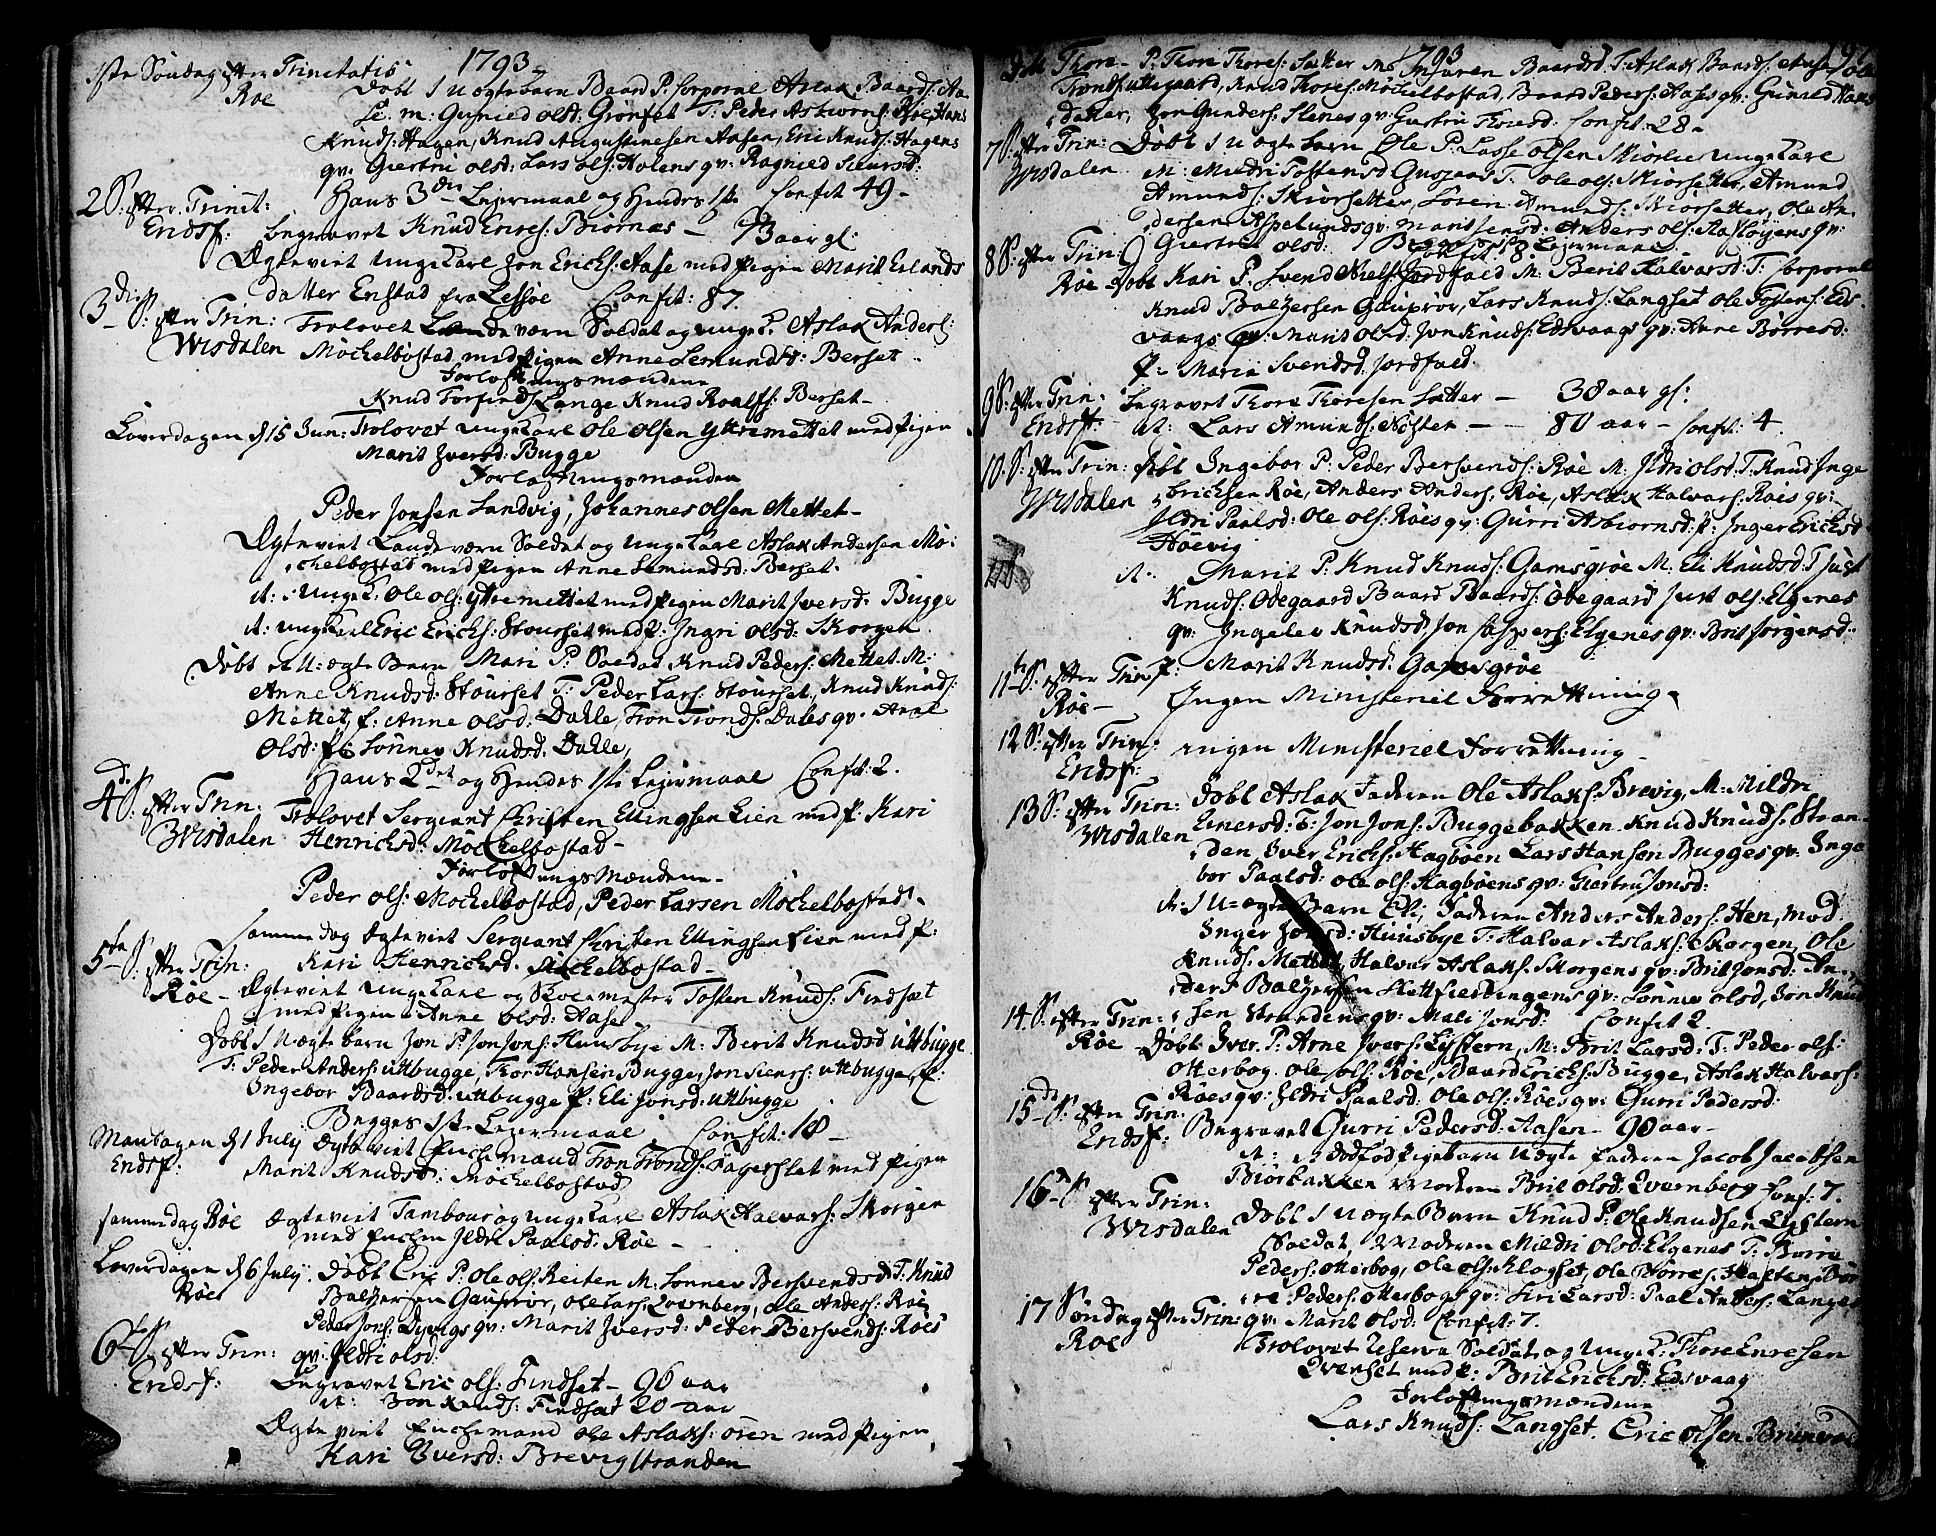 1793
1ste Søndag efter Trinitatis
Roe Døbt 1 uægte barn Baard P. Corporal Aslak Baards: Aa-
se. m: Gunild Olsd: Grønset T: Peder Roe, Hans
Knuds: Hagen, Knud Augustinesen Aasen, Eric Knuds: Hagens
qv: Giertru Olsd: Lars Ols: Holens qv: Ragnild Siursd:
Hans 3die Leiermaal og Hendes 1ste Confit 49 -
2 S: efter Trinit:
Eridsf: begravet Knud Enres: Biørnæs - 7 aar gl:
Ægteviet Unge Karl Jon Erichs: Aase med Pigen Marit Erlands
datter Enstad fra Lessøe Confit: 87.
3die S: efter Trin:
Wisdalen Trolovet Landeværn Soldat og unge K. Aslak Anders:
Møchelbostad med Pigen Anne Semundsd: Berset -
Forlofningsmændene
Knud Torfinds: Lange Knud Roalfs: Berset -
Løverdagen d 15 Jun: Trolovet unge Karl Ole Olsen Yttremettet med Pigen
Marit Iversd: Bugge
Forlofningsmænden
Peder Jonsen Sandvig, Johannes Olsen Mettet -
Ægteviet Landeværn Soldat og unge Karl Aslak Andersen Mø-
chelbostad med Pigen Anne Semundsd: Berset.
it: unge K. Ole Ols: Yttremettet med Pigen Marit Iversd: Bugge
it: unge Karl Eric Erichs: Stourset med P: Ingri Olsd: Skorgen
Døbt et U: ægte Barn Mari P: Soldat Knud Peders: Mettet M:
Anne Knudsd: Stourset T: Peder Lars: Stourset, Knud Knuds:
Mettet, P: Anne Olsd: Dahle, Tron Tronds: Dales qv: Anne
Olsd: P: Sønnev Knudsd: Dahle,
Hans 2det og Hendes 1ste Leiermaal Confit: 2.
4d S: efter Trin:
Wisdalen Trolovet Sergeant Christen Ellingsen Lien med P: Kari
Henrichsd: Møchelbostad -
Forlofningsmændene -
Peder Ols: Møchelbostad, Peder Larsen Møchelbostad.
samme dag Ægteviet Sergeant Christen Ellingsen Lien med P:
Kari Henrichsd. Møchelbostad -
5te S: efter Trin:
Roe - Ægteviet Unge Karl og Skolemester Tosten Knuds: Findsæt
med Pigen Anne Olsd: Aase
Døbt 1 uægte barn Jon P: Jon Jons: Huusbye M: Berit Knudsd Utbugge
T: Peder Anders: Utbugge, Tor Hansen Bugge, Jon Siurs: Utbugge, P:
Ingebor Baardsd: Utbugge P: Eli Jonsd: Utbugge
Begges 1ste Leiermaal Confit: 18 -
Mandagen d 1 July
Eridsf: Ægteviet Enchemand Tron Tronds: Fagerslet med Pigen
Marit Knudsd: Møchelbostad
samme dag Roe Ægteviet Tambour og unge Karl Aslak Halvars: Skorgen
med Enchen Ildri Paalsd: Roe -
Løverdagen d 6 July
Roe Døbt Eric P: Ole Ols: Reiten M. Sønnev Bersvendsd T: Knud
Baltzersen Gaupror, Ole Lars: Qvernberg, Ole Anders: Roe,
Peder Jons: qv: Marit Iversd: Peder Bersvends: Roes
qv: Ildri Olsd:
6te S: efter Trin:
Eridsf: begravet Eric Ols: Findset - 96 aar
it: Jon Knuds: Findsæt 20 aar
Ægteviet Enchemand Ole Aslaks: Øren med Pigen
Kari Iversd: Brevigstranden
1793
Døbt Thore P: Thore Thores: Sætter M: Baardsd T: Aslak Baards: Aase, Ole
Knud Thores: Møchelbostad, Baard Peders: Aases qv: Gunild Hans-
datter, Jon Gunders: Stenes qv: Giertru Thoresd: Confit 28 -
7 S: efter Trin:
Wisdalen Døbt 1 uægte barn Ole P: Lasse Olsen Skiørlie unge Karl
M: Mildri Tostensd T: Ole Ols: Skiørsetter, Amund
Amunds: Skiorsetter, Søren Amunds: Skiorsetter, Ole An-
dersen Aspelunds qv: Marit Jensd: Anders Ols: qv:
Giertru Olsd: Confit: 8.
8 S: efter Trin:
Roe Døbt Kari P. Svend Niels: Jordfald M: Berit Halvarsd: T: Corporal
Knud Baltzersen Gauprør, Lars Knuds: Langset Ole Tostens: Eds-
vaags qv: Marit Olsd: Jon Knuds: Edsvaags qv: Anne Børresd:
P: Marit Svendsd. Jordfald.
9 S: efter Trin:
Eridsf: begravet Thore Thoresen Sætter - 38 aar gl:
it: Lars Amunds: - 80 aar - Confit: 4
10 S: efter Trin:
Wisdalen Døbt Ingebor P: Peder Bersvends: Roe M: Ildri Olsd: T: Knud Inge-
brichsen Roe, Anders Anders: Roe, Aslak Halvars: Roes qv:
Ildri Paalsd: Ole Ols: Roes qv: Gurri Asbiornsd: P: Inger Ericksd
Høevig
it: Marit P: Knud Knuds: Gamsgrøe M. Eli Knudsd: T: Just
Knuds: Ødegaard Baard Baards: Ødegaard Just Ols: Elgenes
qv: Ingeler Knudsd: Jon Caspers: Elgenes qv: Brit Jorgensd:
P: Marit Knudsd: Gamsgrøe
11te S: efter Trin:
Roe - Ingen Ministeriel Forretning
12 S: efter Trin:
Eridsf: ingen Ministeriel Forretning
13 S: efter Trin:
Wisdalen Døbt Aslak Faderen Ole Aslaks: Brevig, M: Mildri
Einersd: T: Jon Jons: Buggebakken. Knud Knuds: Stran-
den Iver Erichs: Hagbøen Lars Hansen Bugges qv: Inge-
bor Paalsd: Ole Ols: Hagbøens qv: Giertru Jonsd:
it: 1 U: ægte Barn Eli, Faderen Anders Anders: Hen, mod.
Inger Jonsd: Huusbye T: Halvar Aslaks: Skorgen, Ole
Knuds: Mettet Halvar Aslaks: Skorgens qv: Brit Jonsd: An-
ders Baltzersen qv: Sønnev Olsd, Jon Knud-
sen Strandens qv: Mali Jonsd: Confit 2.
14 S: efter Trin:
Roe Døbt Iver P. Arne Ivers: Lystern, M: Brit Larsd: T: Peder Ols:
Otterbog Ole Ols: Roe, Baard Erichs: Bugge, Aslak Halvars:
Roes qv: Ildri Paalsd: Ole Ols: Roes qv: Gurri Pedersd:
15de S: efter Trin:
Eridsf: Begravet Gurri Pedersd: Aasen - 90 aar -
it: 1 dødfød Pigebarn Uægte Faderen Jacob Jacobsen
Biorbakken Moderen Brit Olsd: Qvernberg Conf: 7.
16d S: efter Trin:
Wisdalen Døbt 1 uægte Barn Knud P: Ole Knudsen Lystern
Soldat, Moderen Mildri Olsd: Elgenes T: Børre
Peders: Otterbog, Ole Ols: Klogset, Ole Børres: Bør-
re Peders: Otterbogs qv: Siri Larsd: Paal Anders: Langes
qv: Marit Olsd: Confit: 7.
17 Søndag efter Trin:
Roe Trolovet Reserve Soldat og unge K. Thore Enresen
Qvenset med P: Brit Ericksd: Edsvaag
Forlofningsmændene
Lars Knuds: Langset. Eric Olsen